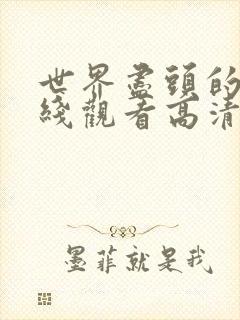 世界盡頭的
綫觀看高清
墨菲就是我